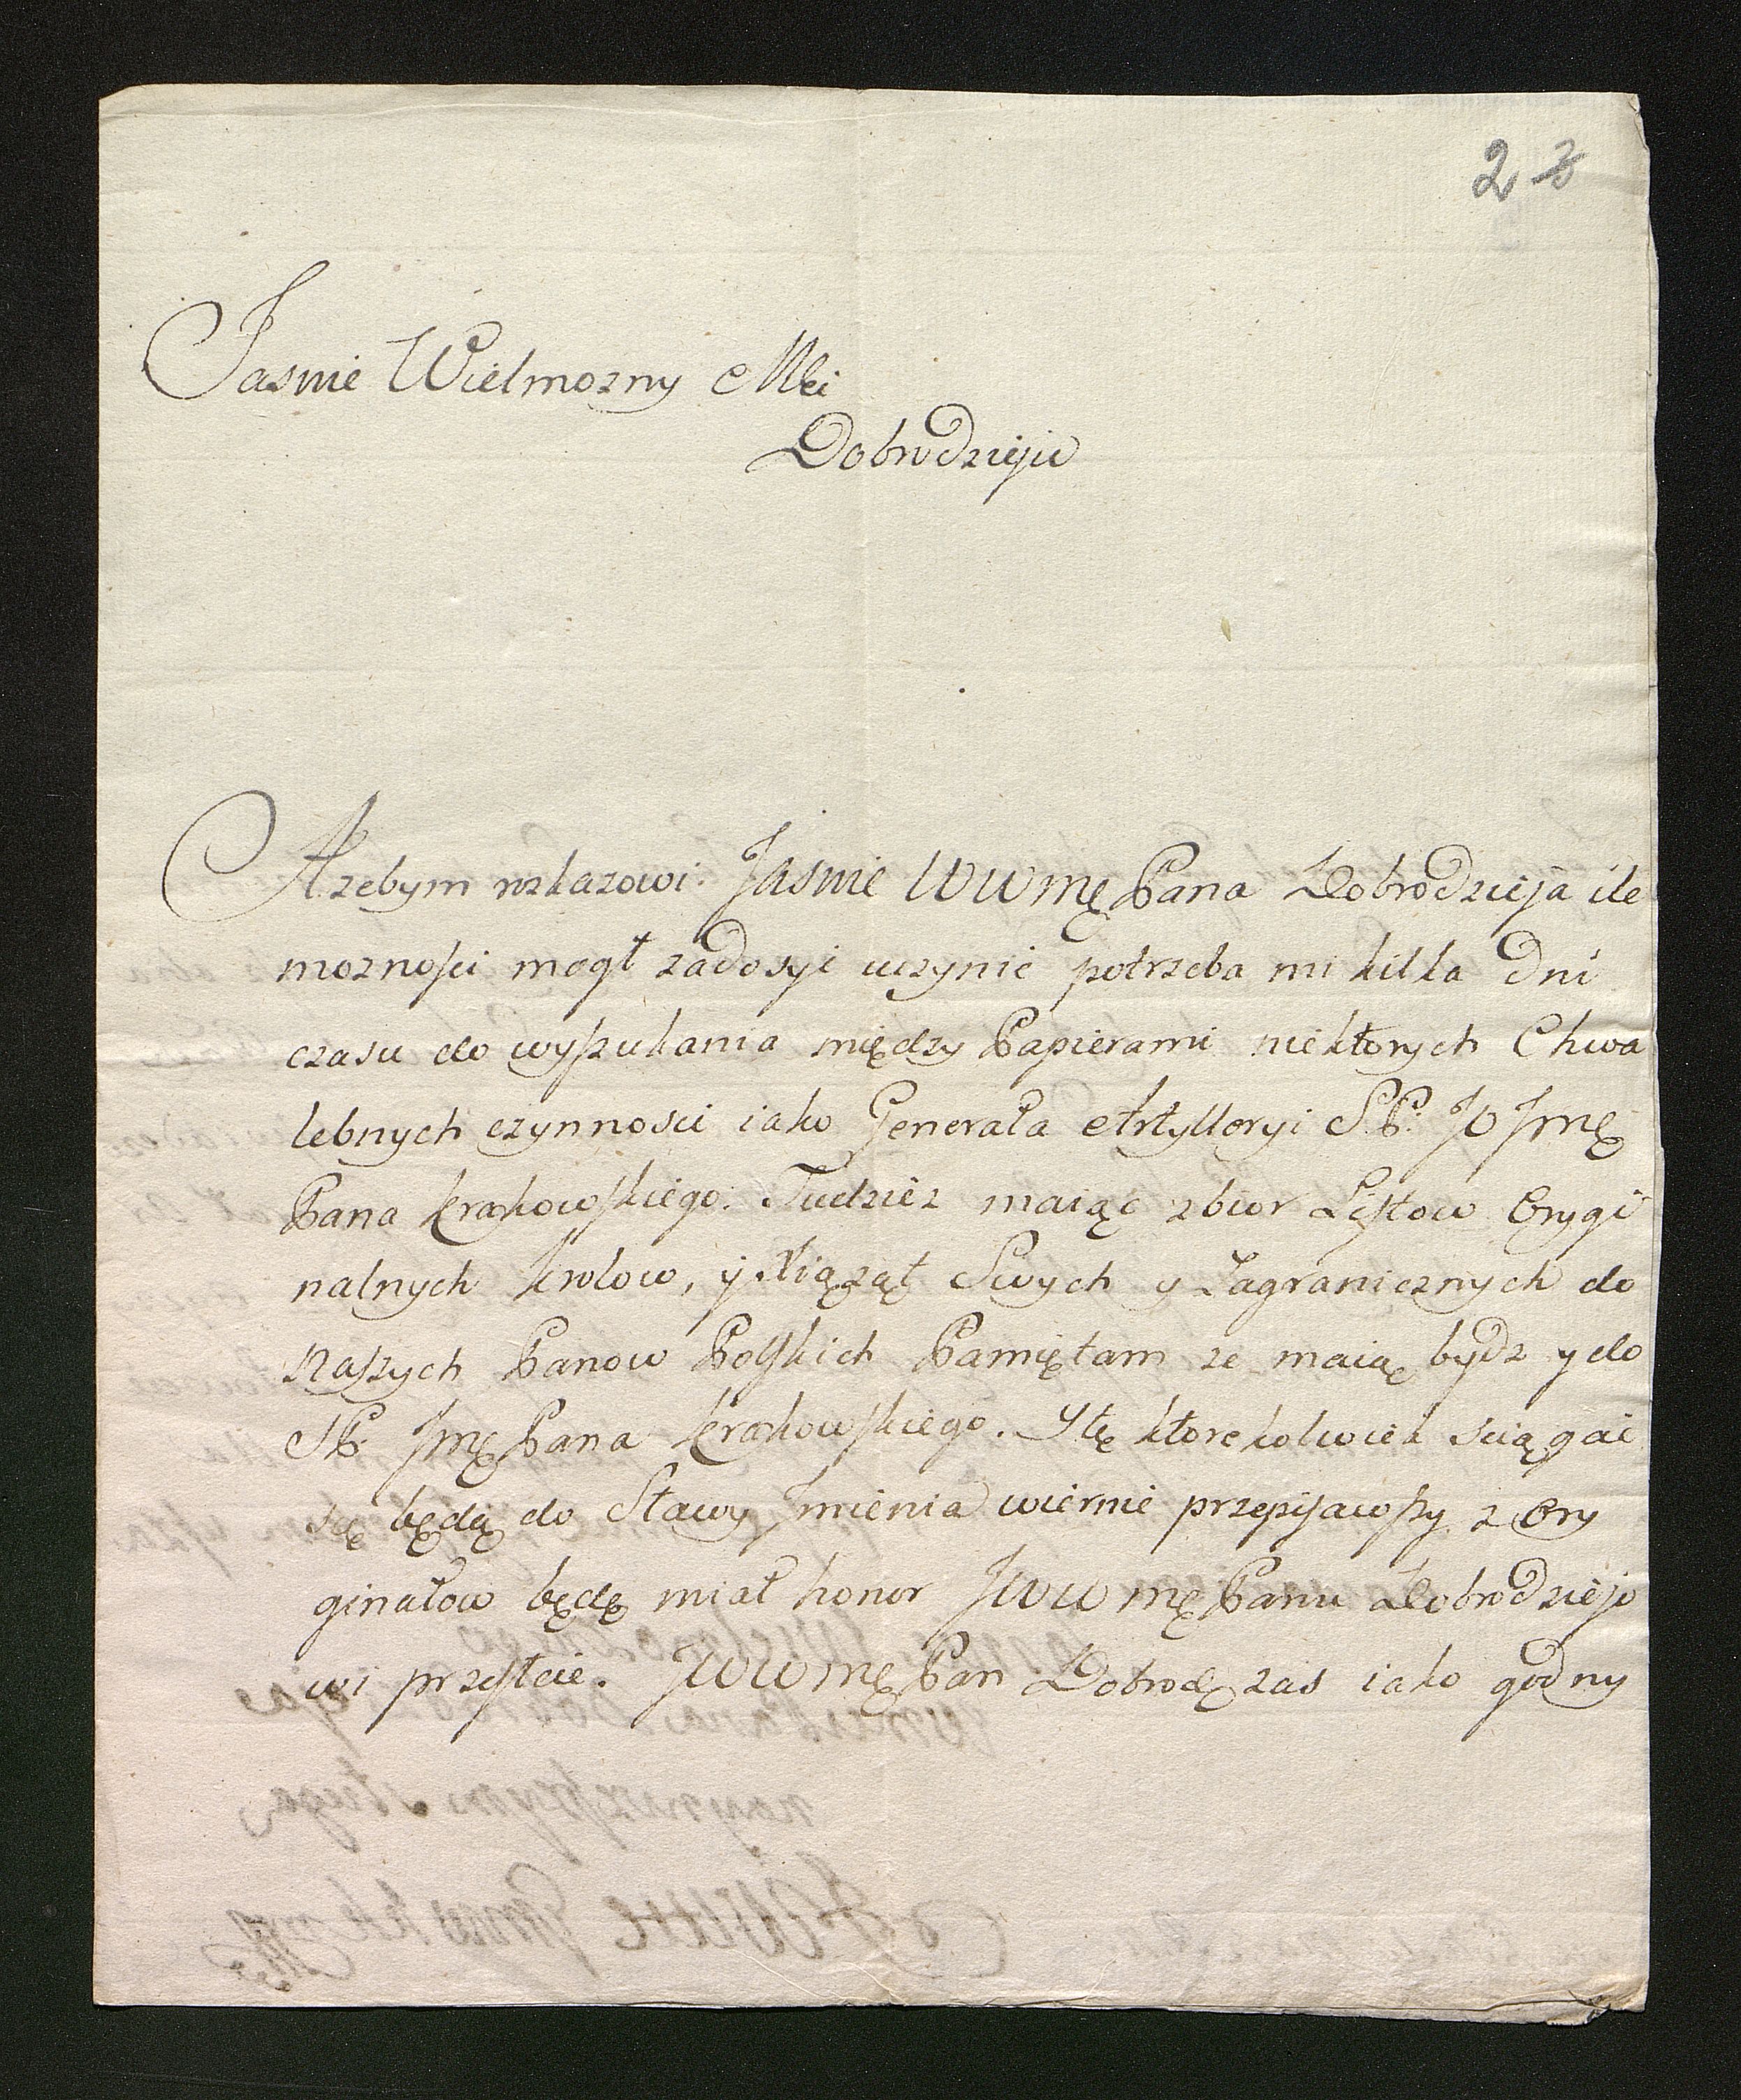 2 3
Jasnie Wielmozny Mci
Dobrodzieju
Azebym rozkazowi Jasnie WWMę Pana Dobrodzieja ile
moznosci mogł zadosyć uczynić potrzeba mi kilka dni
czasu do wyszukania między Papierami niektorych Chwa
lebnych czynnosci iako Generała Artylleryi S.P. JO Jmę
Pana Krakowskiego. Tudziez maiąc zbior Listow Orygi
nalnych Krolow, y Xiąząt Swych y Zagranicznych do
Naszych Panow Polskich Pamiętam ze maią bydz y do
SP. Jmę Pana Krakowskiego. Y te ktorekolwiek sciągać
się będą do Sławy Jmienia wiernie przepisawszy z Ory
ginałow będę miał honor JWWMę Panu Dobrodziejo
wi przesłać. JWWMę Pan Dobrodz zas iako godny